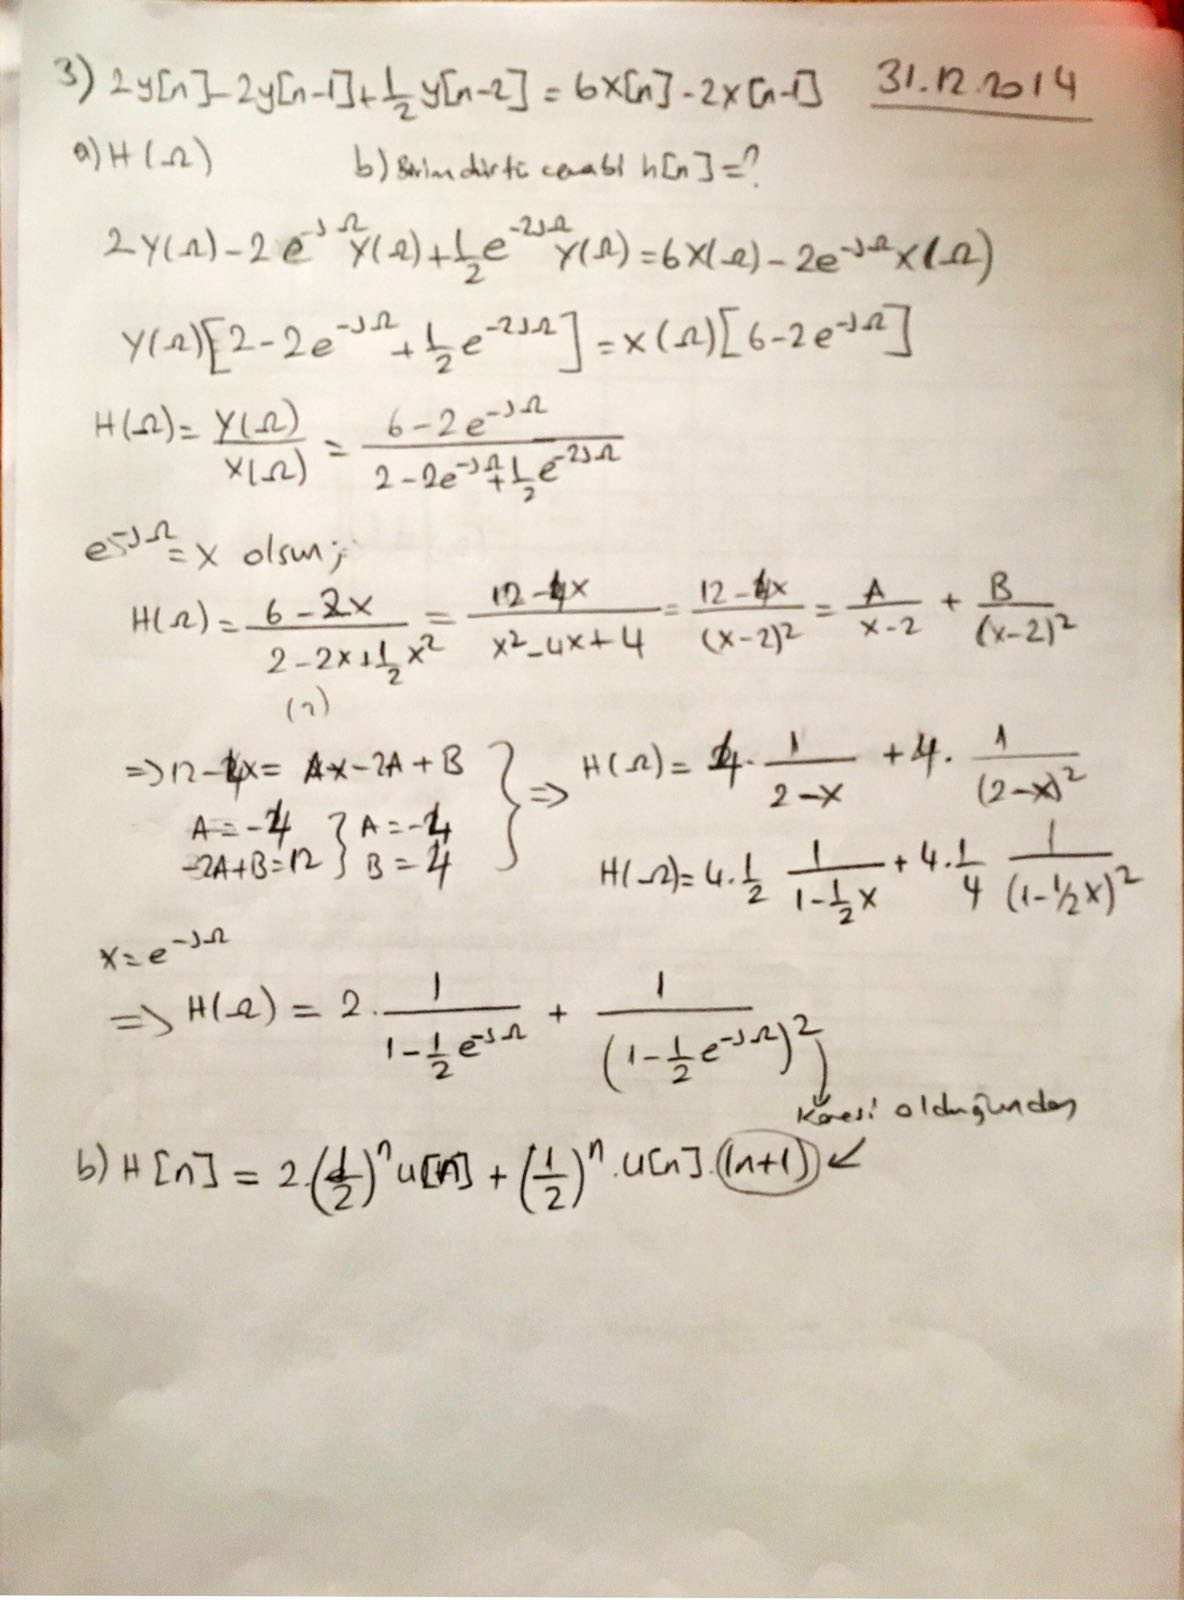 3) 2y[n]-2y[n-1]+1/2 y[n-2] = 6x[n]-2x[n-1] 31.12.2014
a) H(Ω) b) Birim dürtü cevabı h[n]=?
2Y(Ω)-2e^-jΩ Y(Ω)+1/2 e^-2jΩ Y(Ω)=6X(Ω)-2e^-jΩ X(Ω)
Y(Ω)[2-2e^-jΩ+1/2 e^-2jΩ]=X(Ω)[6-2e^-jΩ]
H(Ω)=Y(Ω)/X(Ω)=(6-2e^-jΩ)/(2-2e^-jΩ+1/2 e^-2jΩ)
e^-jΩ=x olsun;
H(Ω)=(6-2x)/(2-2x+1/2 x^2)=(12-4x)/(x^2-4x+4)=(12-4x)/(x-2)^2=A/(x-2)+B/(x-2)^2
(2)
=>12-4x=Ax-2A+B } => H(Ω)=4·1/(2-x)+4·1/(2-x)^2
A=-4 } A=-4
-2A+B=12 } B=4
H(Ω)=4·1/2 1/(1-1/2 x)+4·1/4 1/(1-1/2 x)^2
x=e^-jΩ
=> H(Ω)=2·1/(1-1/2 e^-jΩ)+1/(1-1/2 e^-jΩ)^2
Karesi olduğundan
b) H[n]=2·(1/2)^n u[n]+(1/2)^n·u[n]·(n+1)